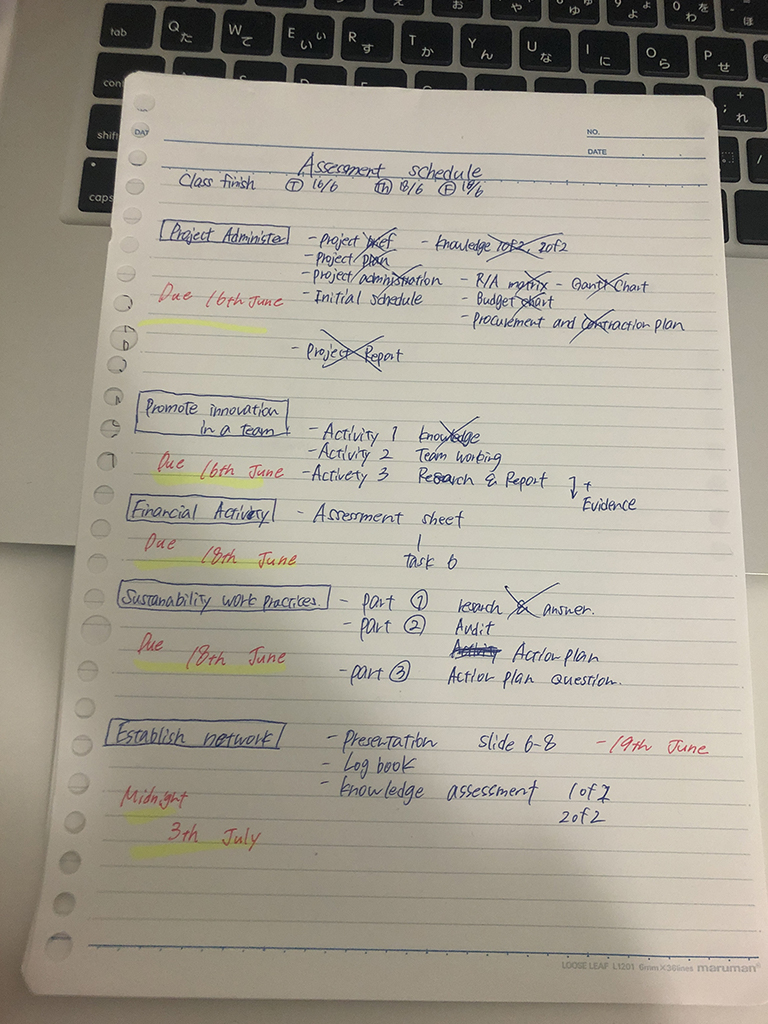 tab Q た W て E い い R す T か Y ん U な I に O ら P せ
DAT
NO.
DATE
Assessment schedule
Class finish T 16/6 Th 18/6 F 19/6
Project Administe
- Project brief - knowledge 1of2, 2of2
- Project plan
- project administration - R/A matrix - Gantt Chart
Due 16th June - Initial schedule - Budget chart
- procurement and contraction plan
- Project Report
Promote innovation
in a team - Activity 1 knowledge
- Activity 2 Team working
Due 16th June - Activety 3 Research & Report ↓ +
Evidence
Financial Activity - Assessment sheet
Due 18th June Task 6
Sustanability work practices. - part ① research & answer.
- part ② Audit
Due 18th June Action plan
- part ③ Action plan question.
Establish network - Presentation slide 6-8 - 19th June
- Log book
Midnight - knowledge assessment 1of2
2of2
3th July
LOOSE LEAF L1201 6mm×36lines maruman